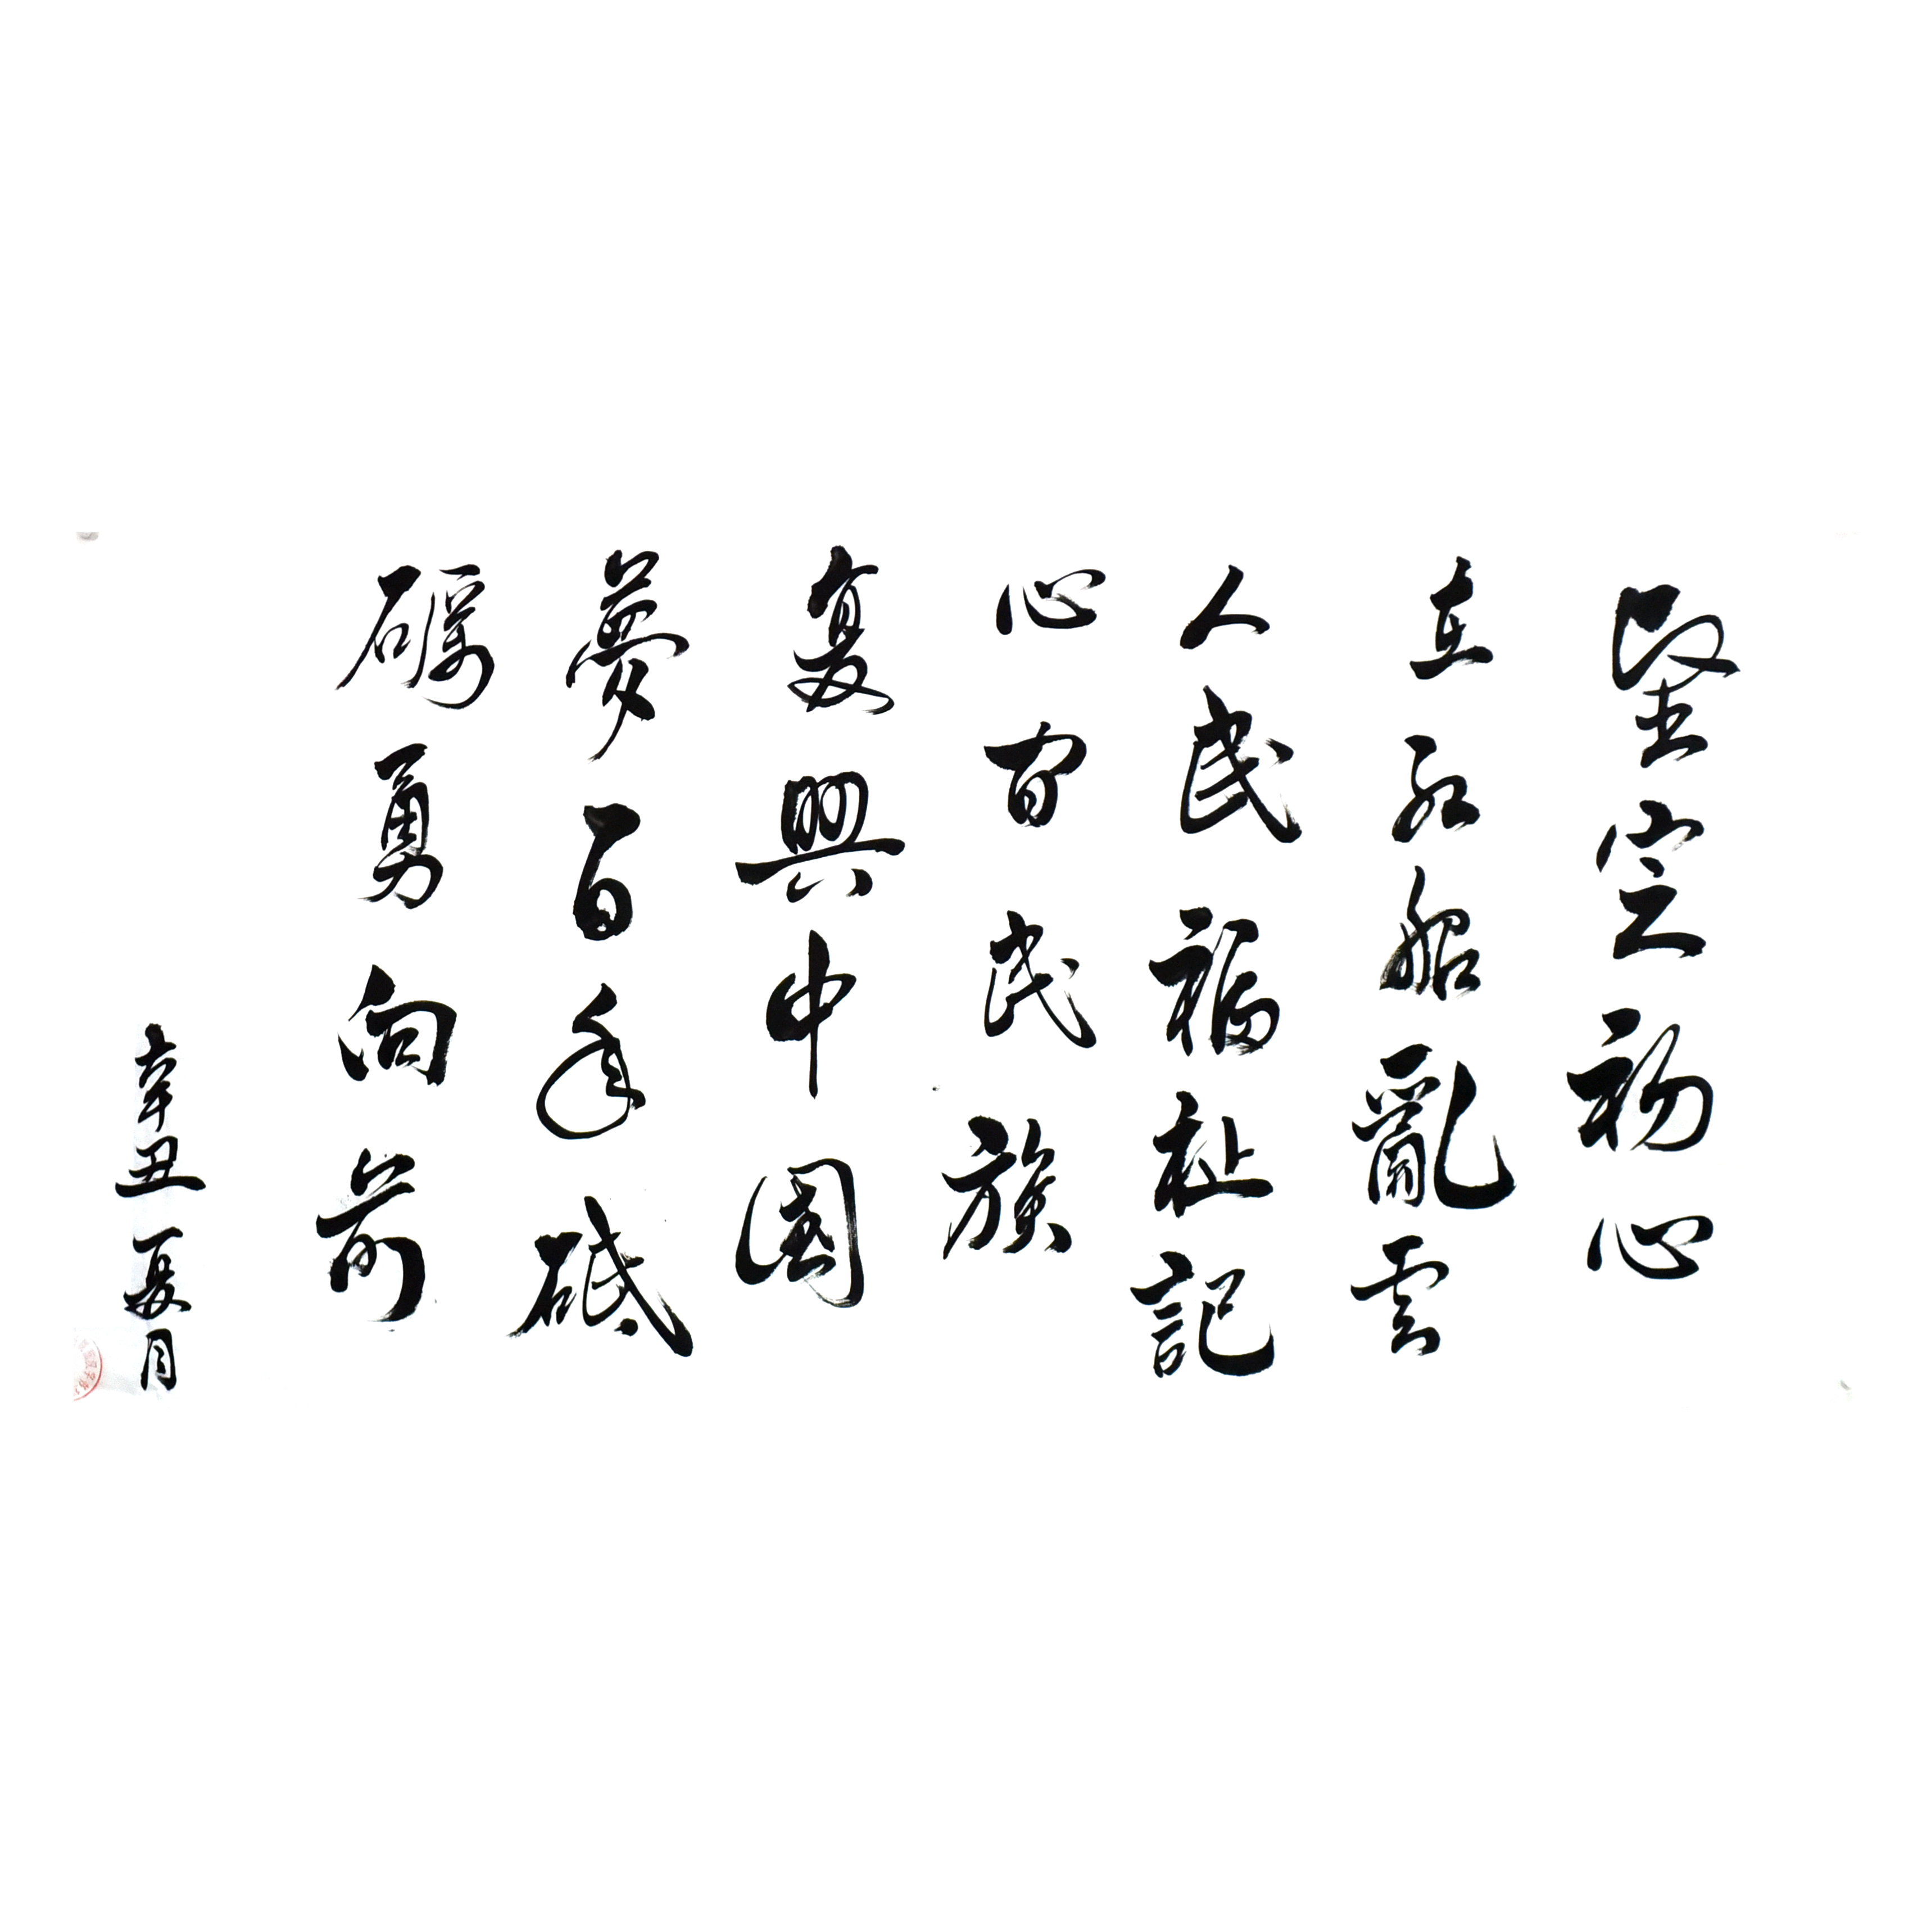 堅定初心
在紅船亂雲
人民福祉記
心間民族
复興中國
夢百年砥
礪勇向前
辛丑夏月